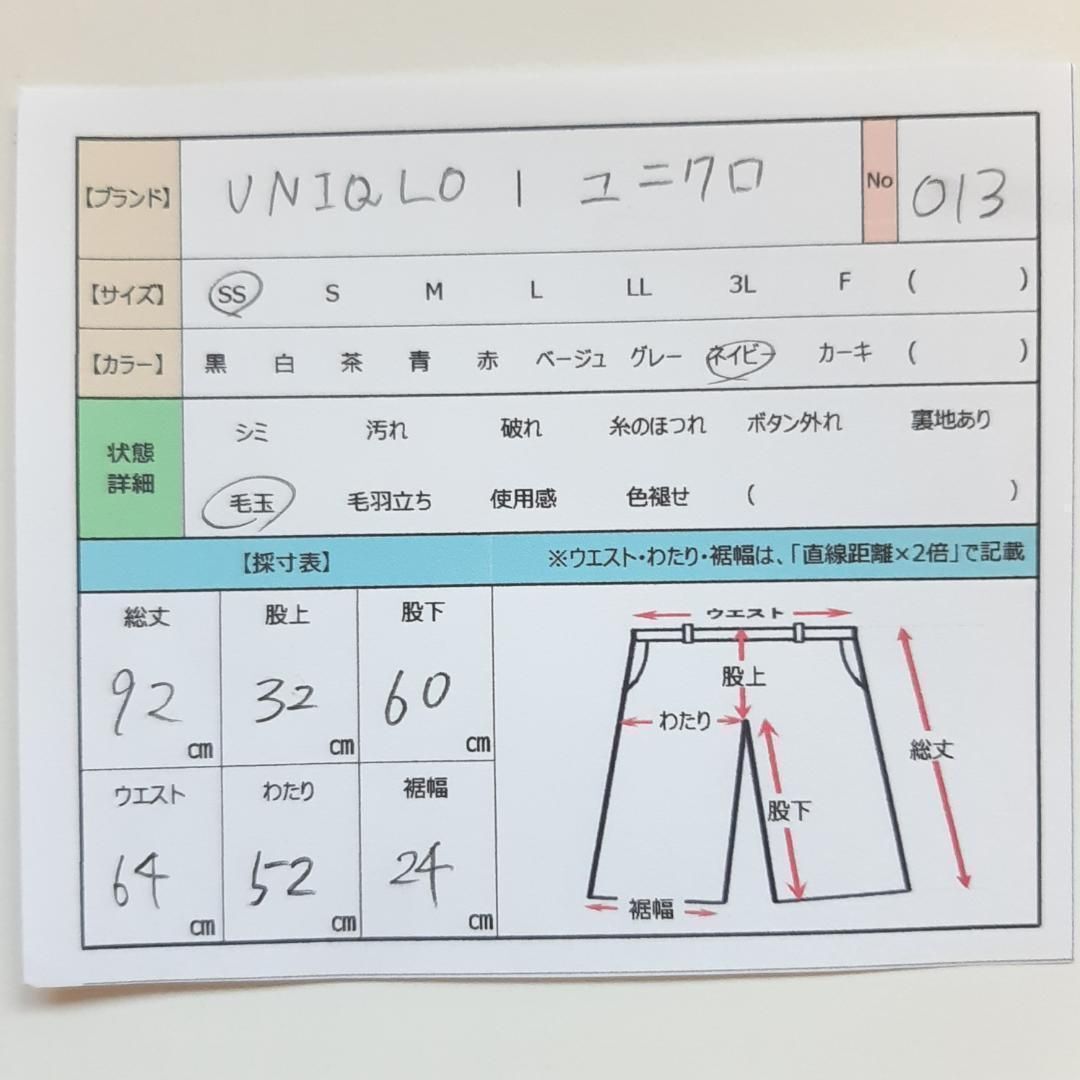 【ブランド】 UNIQLO | ユニクロ No 013
【サイズ】 SS S M L LL 3L F ( )
【カラー】 黒 白 茶 青 赤 ベージュ グレー ネイビー カーキ ( )
状態
詳細
シミ 汚れ 破れ 糸のほつれ ボタン外れ 裏地あり
毛玉 毛羽立ち 使用感 色褪せ ( )
【採寸表】 ※ウエスト・わたり・裾幅は、「直線距離×2倍」で記載
総丈 股上 股下
92 cm 32 cm 60 cm
ウエスト わたり 裾幅
64 cm 52 cm 24 cm
ウエスト
股上
わたり
総丈
股下
裾幅